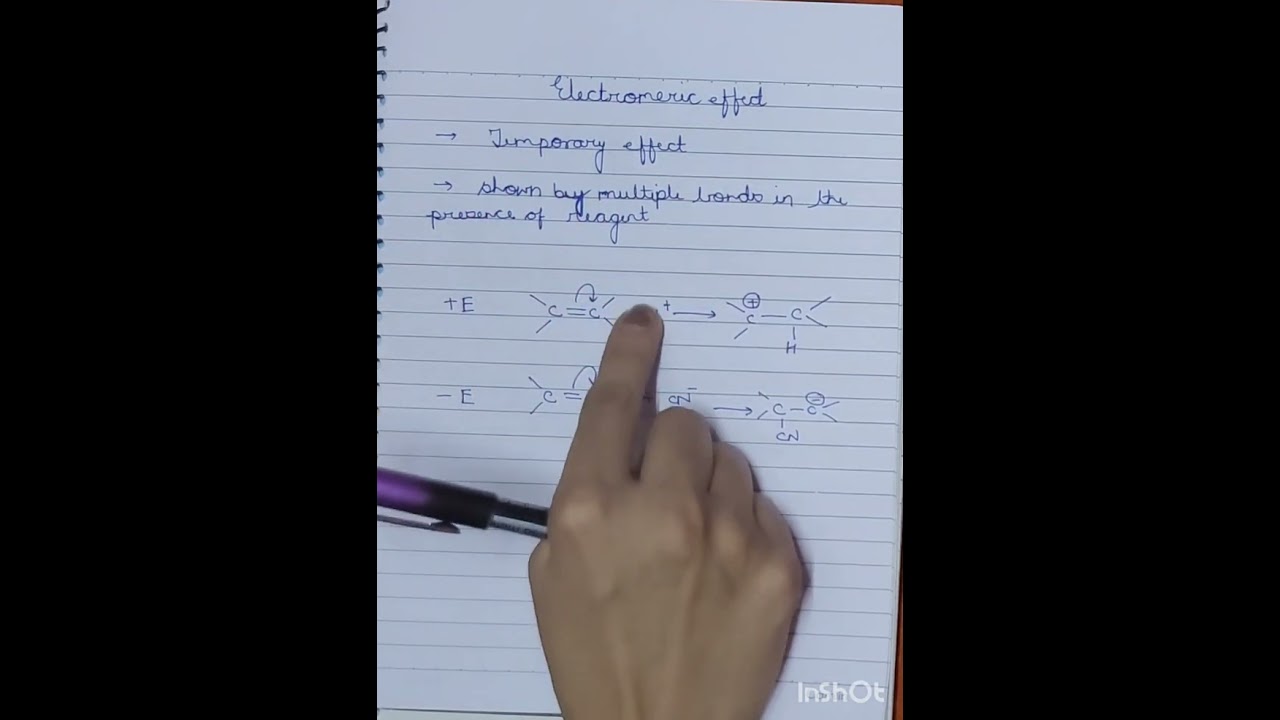 Electromeric effect
→ Temporary effect
→ shown by multiple bonds in the
presence of reagent
+E C=C + → ⊕ C—C H
−E C= CN⁻ → C—C ⊖ CN
InShOt